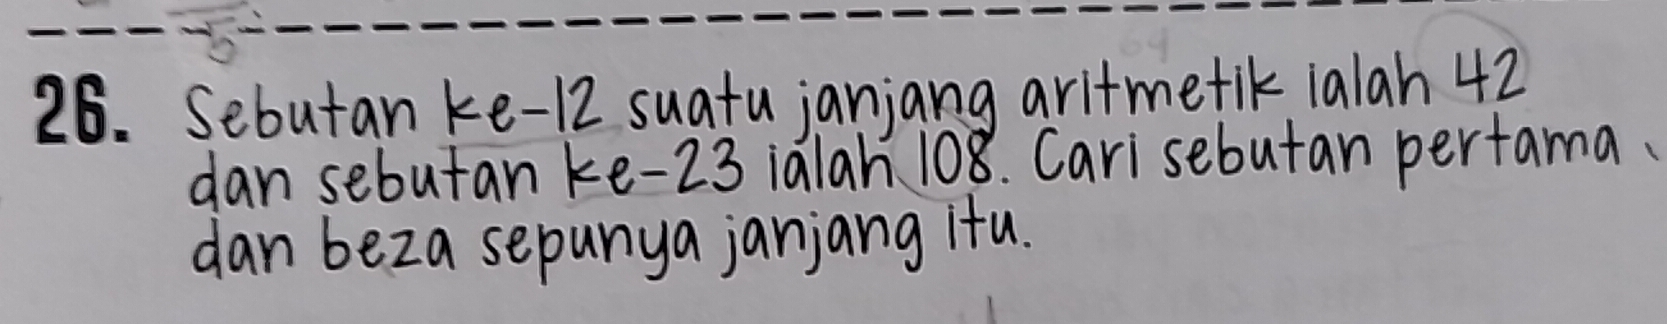 26. Sebutan ke-12 suatu janjang aritmetik ialah 42
dan sebutan ke-23 ialah 108. Cari sebutan pertama
dan beza sepunya janjang itu.